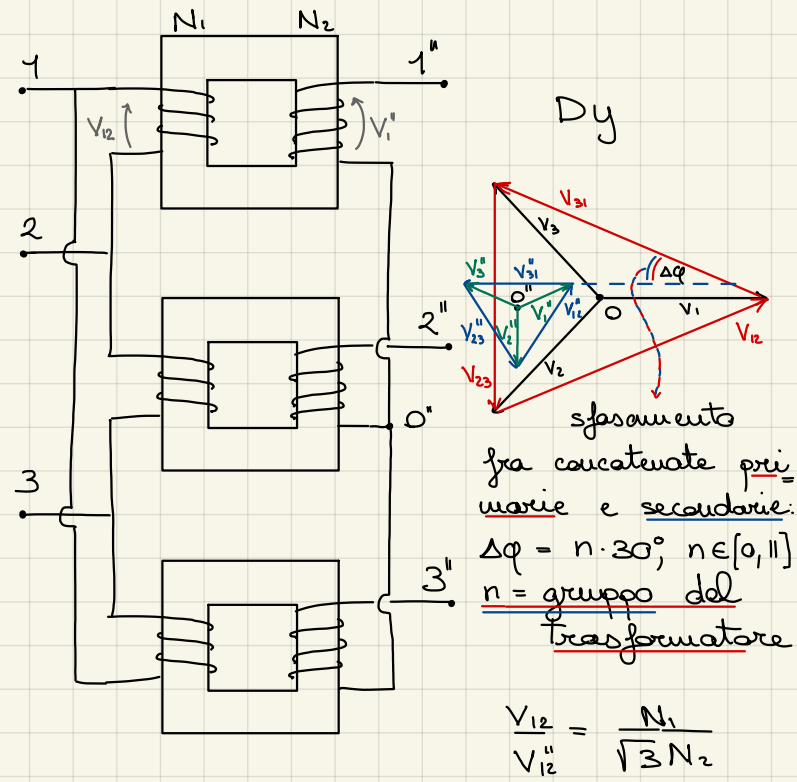 N₁ N₂
1
1"
V₁₂
V₁"
Dy
2
2"
3
0"
3"
V₃₁
V₃
Δφ
V₃"
V₃₁"
0"
V₁"
V₁₂"
O
V₁
V₂₃"
V₂"
V₁₂
V₂₃
V₂
sfasamento
fra concatenate pri
marie e secondarie:
Δφ = n·30°, n∈[0,11]
n = gruppo del
trasformatore
V₁₂ / V₁₂" = N₁ / √3 N₂